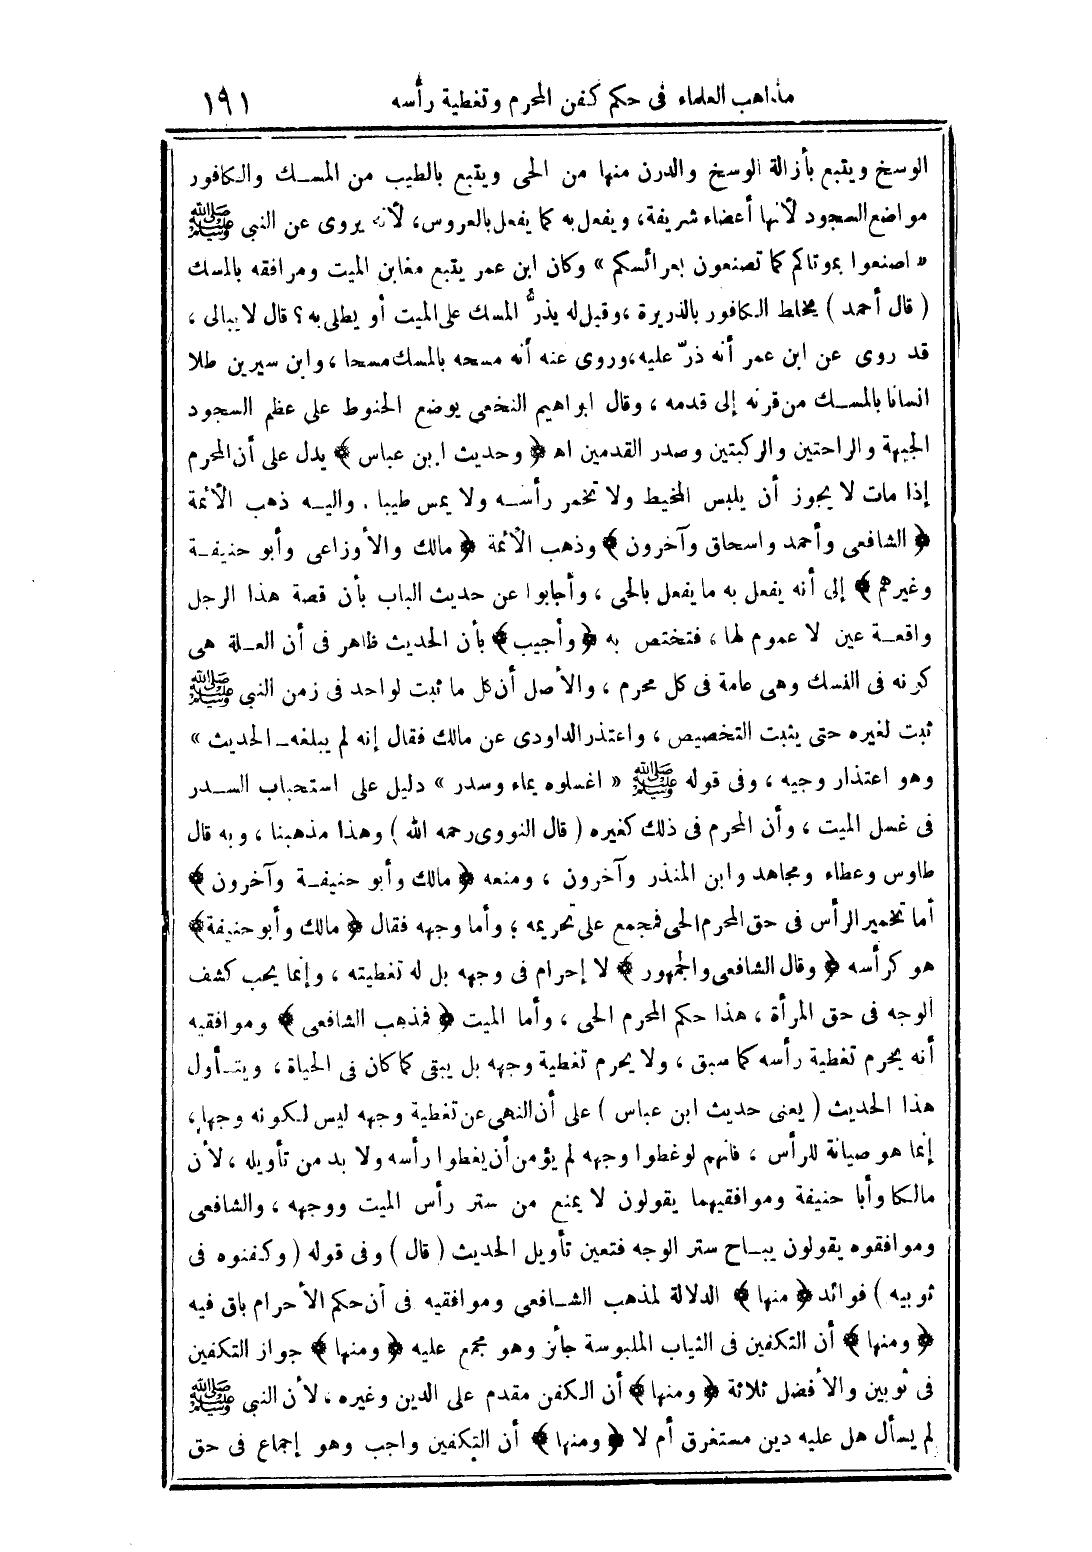 مذاهب العلماء فى حكم كفن المحرم وتغطية رأسه ١٩١
الوسخ ويتبع بأزالة الوسخ والدرن منها من الحى ويتبع بالطيب من المسك والكافور
مواضع السجود لأنها أعضاء شريفة، ويفعل به كما يفعل بالعروس، لأنه يروى عن النبى ﷺ
« اصنعوا بموتاكم كما تصنعون بعرائسكم » وكان ابن عمر يتبع مغابن الميت ومرافقه بالمسك
( قال أحمد ) يخلط الكافور بالذريرة ، وقيل له يذرُّ المسك على الميت أو يطلى به؟ قال لا يبالى ،
قد روى عن ابن عمر أنه ذرّ عليه، وروى عنه أنه مسحه بالمسك مسحا ، وابن سيرين طلا
انسانا بالمسك من قرنه إلى قدمه ، وقال ابراهيم النخعى يوضع الحنوط على عظم السجود
الجبهة والراحتين والركبتين وصدر القدمين اه ﴿ وحديث ابن عباس ﴾ يدل على أن المحرم
إذا مات لا يجوز أن يلبس المخيط ولا تخمر رأسه ولا يمس طيبا . واليه ذهب الأئمة
﴿ الشافعى وأحمد واسحاق وآخرون ﴾ وذهب الأئمة ﴿ مالك والأوزاعى وأبو حنيفة
وغيرهم ﴾ إلى أنه يفعل به ما يفعل بالحى ، وأجابوا عن حديث الباب بأن قصة هذا الرجل
واقعة عين لا عموم لها ، فتختص به ﴿ وأجيب ﴾ بأن الحديث ظاهر فى أن العلة هى
كونه فى النسك وهى عامة فى كل محرم ، والأصل أن كل ما ثبت لواحد فى زمن النبى ﷺ
ثبت لغيره حتى يثبت التخصيص ، واعتذر الداودى عن مالك فقال إنه لم يبلغه ـ الحديث »
وهو اعتذار وجيه ، وفى قوله ﷺ « اغسلوه بماء وسدر » دليل على استحباب السدر
فى غسل الميت ، وأن المحرم فى ذلك كغيره ( قال النووى رحمه الله ) وهذا مذهبنا ، وبه قال
طاوس وعطاء ومجاهد وابن المنذر وآخرون ، ومنعه ﴿ مالك وأبو حنيفة وآخرون ﴾
أما تخمير الرأس فى حق المحرم الحى فمجمع على تحريمه ؛ وأما وجهه فقال ﴿ مالك وأبو حنيفة ﴾
هو كرأسه ﴿ وقال الشافعى والجمهور ﴾ لا إحرام فى وجهه بل له تغطيته ، وإنما يجب كشف
الوجه فى حق المرأة ، هذا حكم المحرم الحى ، وأما الميت ﴿ فمذهب الشافعى ﴾ وموافقيه
أنه يحرم تغطية رأسه كما سبق ، ولا يحرم تغطية وجهه بل يبقى كما كان فى الحياة ، ويتأول
هذا الحديث ( يعنى حديث ابن عباس ) على أن النهى عن تغطية وجهه ليس لكونه وجها ،
إنما هو صيانة للرأس ، فانهم لو غطوا وجهه لم يؤمن أن يغطوا رأسه ولا بد من تأويله ، لأن
مالكا وأبا حنيفة وموافقيهما يقولون لا يمنع من ستر رأس الميت ووجهه ، والشافعى
وموافقوه يقولون يباح ستر الوجه فتعين تأويل الحديث ( قال ) وفى قوله ( وكفنوه فى
ثوبيه ) فوائد ﴿ منها ﴾ الدلالة لمذهب الشافعى وموافقيه فى أن حكم الأحرام باق فيه
﴿ ومنها ﴾ أن التكفين فى الثياب الملبوسة جائز وهو مجمع عليه ﴿ ومنها ﴾ جواز التكفين
فى ثوبين والأفضل ثلاثة ﴿ ومنها ﴾ أن الكفن مقدم على الدين وغيره ، لأن النبى ﷺ
لم يسأل هل عليه دين مستغرق أم لا ﴿ ومنها ﴾ أن التكفين واجب وهو إجماع فى حق